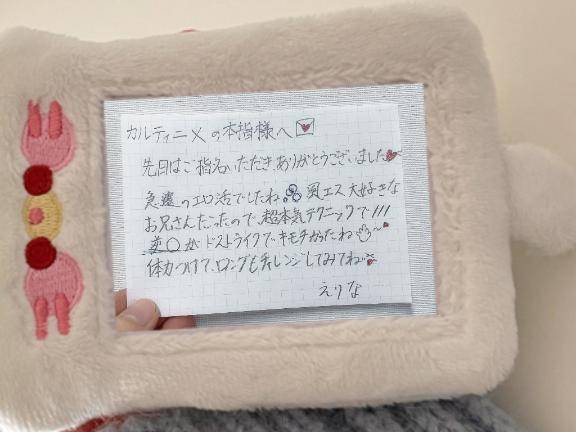 カルティニメの本指様へ
先日はご指名いただき、ありがとうございました
急遽のエロ活でしたね 風エス大好きな
お兄さんだったので、超本気テクニックで!!!
逆○がドストライクでキモチかったね
体力つけて、ロングもチャレンジしてみてね
えりな